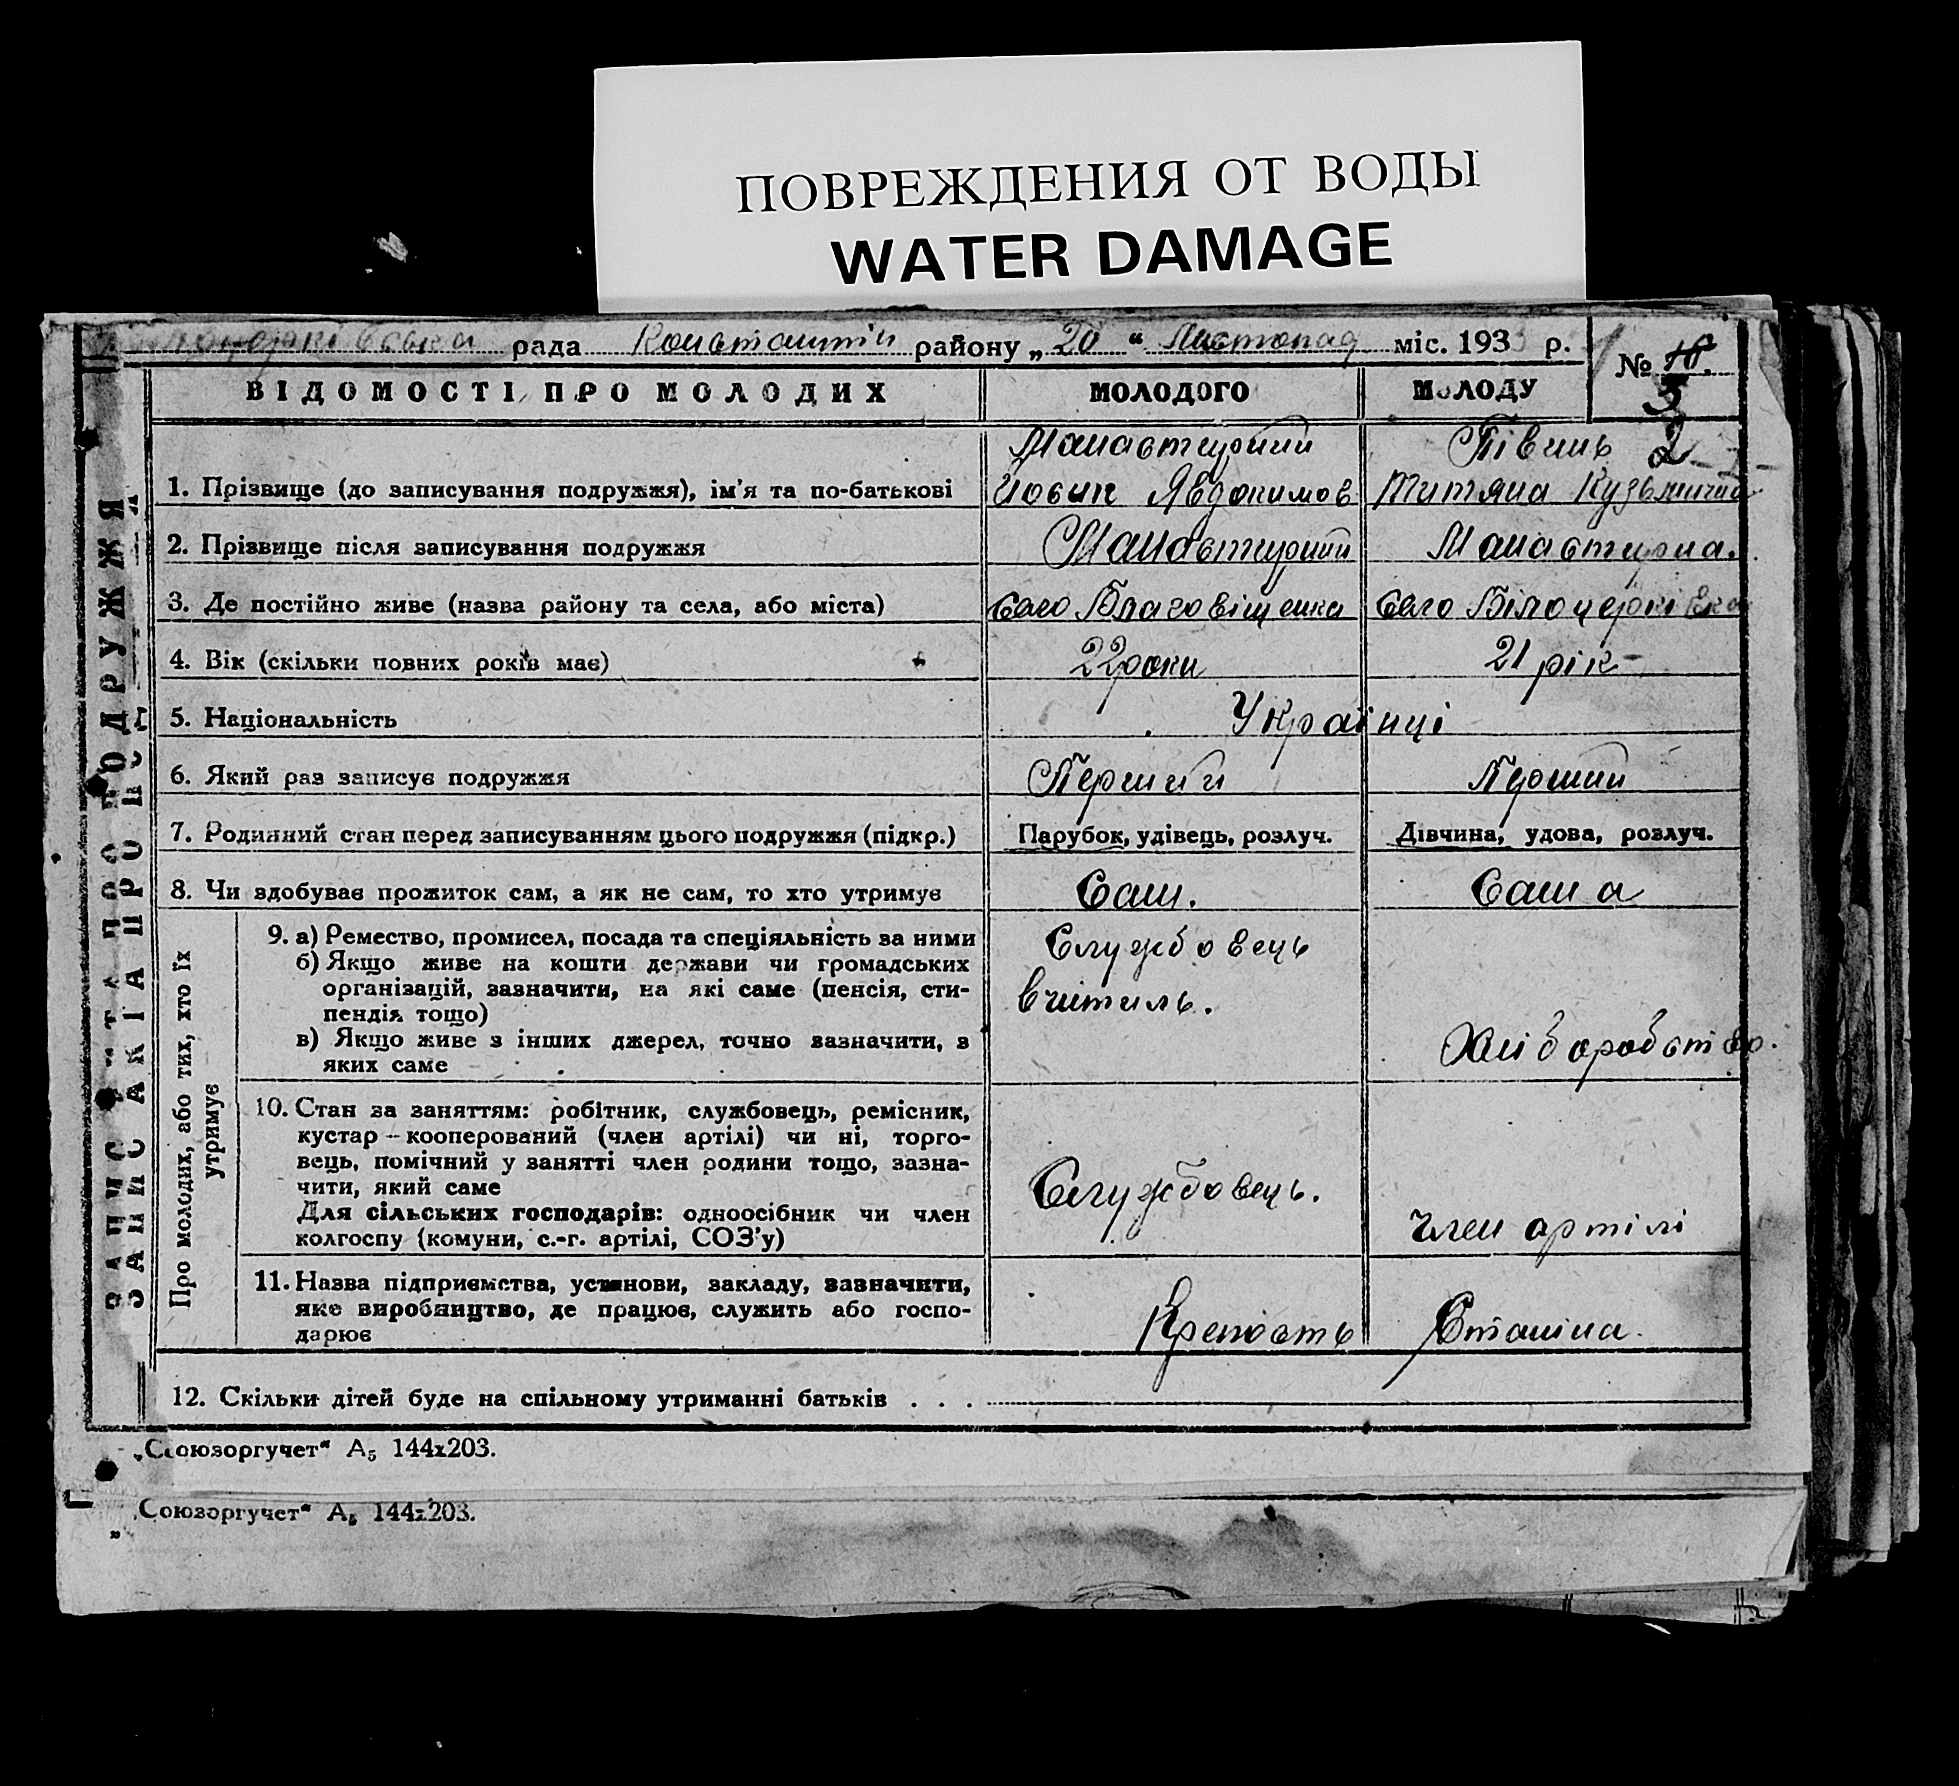 ПОВРЕЖДЕНИЯ ОТ ВОДЫ
WATER DAMAGE
рада Константін району „ 20 “ Листопад міс. 1933 р.
№ 3
ВІДОМОСТІ ПРО МОЛОДИХ МОЛОДОГО МОЛОДУ
Манастирний Півень 2
1. Прізвище (до записування подружжя), ім'я та по-батькові Йосип Явдокимов Титяна Кузьминична
2. Прізвище після записування подружжя Манастирний Манастирна.
3. Де постійно живе (назва району та села, або міста) Село Благовіщенка Село Білоцерківка
4. Вік (скільки повних років має) 22 роки 21 рік
5. Національність Українці
6. Який раз записує подружжя Перший Перший
7. Родинний стан перед записуванням цього подружжя (підкр.) Парубок, удівець, розлуч. Дівчина, удова, розлуч.
8. Чи здобуває прожиток сам, а як не сам, то хто утримує Сам. Сама
9. а) Ремество, промисел, посада та спеціяльність за ними Службовець
б) Якщо живе на кошти держави чи громадських
організацій, зазначити, на які саме (пенсія, сти- вчитиль.
пендія тощо)
в) Якщо живе з інших джерел, точно зазначити, з Хліборобство.
яких саме
10. Стан за заняттям: робітник, службовець, ремісник,
кустар – кооперований (член артілі) чи ні, торго-
вець, помічний у занятті член родини тощо, зазна-
чити, який саме Службовець.
Для сільських господарів: одноосібник чи член
колгоспу (комуни, с.-г. артілі, СОЗ'у) член артілі
11. Назва підприємства, установи, закладу, зазначити,
яке виробництво, де працює, служить або госпо-
дарює Крепость Сталіна.
12. Скільки дітей буде на спільному утриманні батьків . . .
ЗАПИС АКТА ПРО ПОДРУЖЖЯ
Про молодих, або тих, хто їх
утримує
„Союзоргучет“ А₅ 144х203.
„Союзоргучет“ А₅ 144х203.